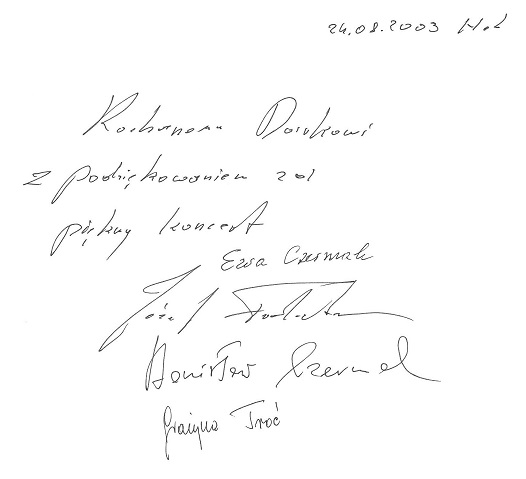 24.08.2003 Hel
Kochanemu Darkowi
z podziękowaniem za
piękny koncert
Ewa Czermak
Józef
Stanisław Czermak
Grażyna Troć